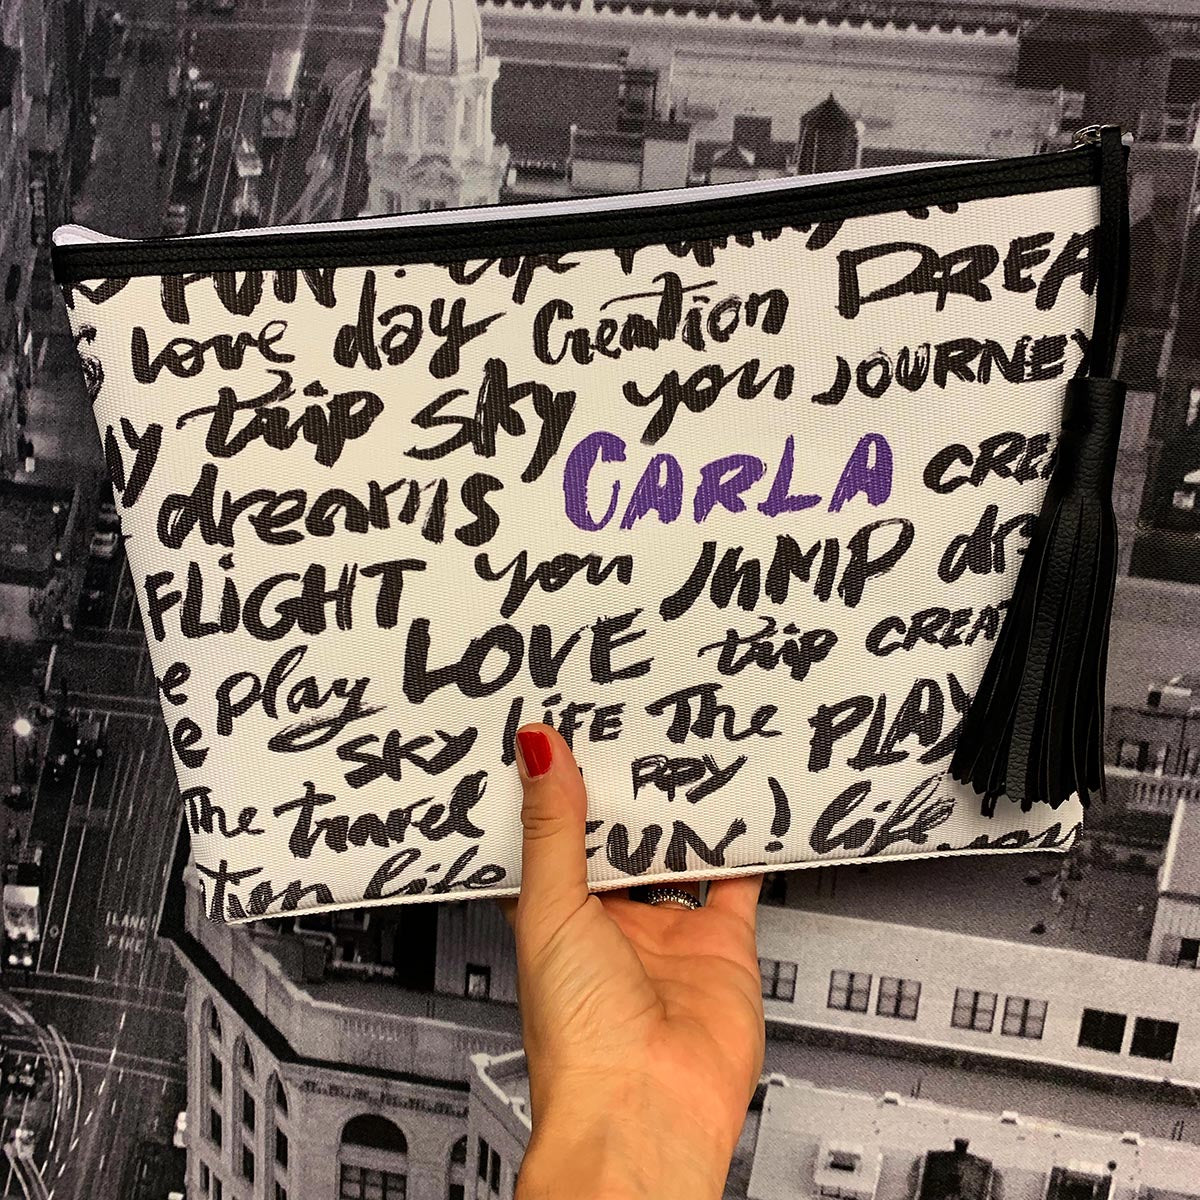 FUN! Life
Love day Creation DREA
trip sky you JOURNEY
dreams CARLA CREA
FLIGHT you JUMP dre
play LOVE trip CREAT
SKY LiFE The PLAY
The travel PPY
life FUN! life you
LANE
FIRE